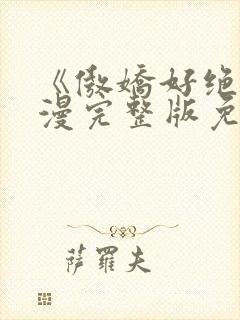 《傲嬌好绝
漫完整版免
萨羅夫